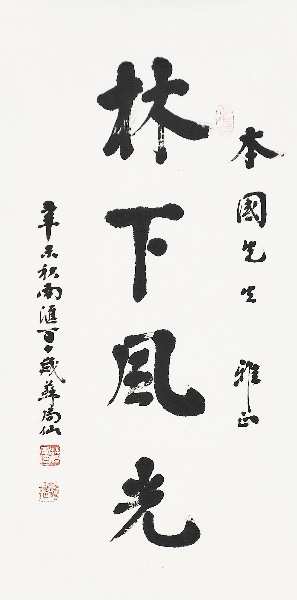 本國先生 雅正
林下風光
辛未秋南滙百〻歲蘇局仙